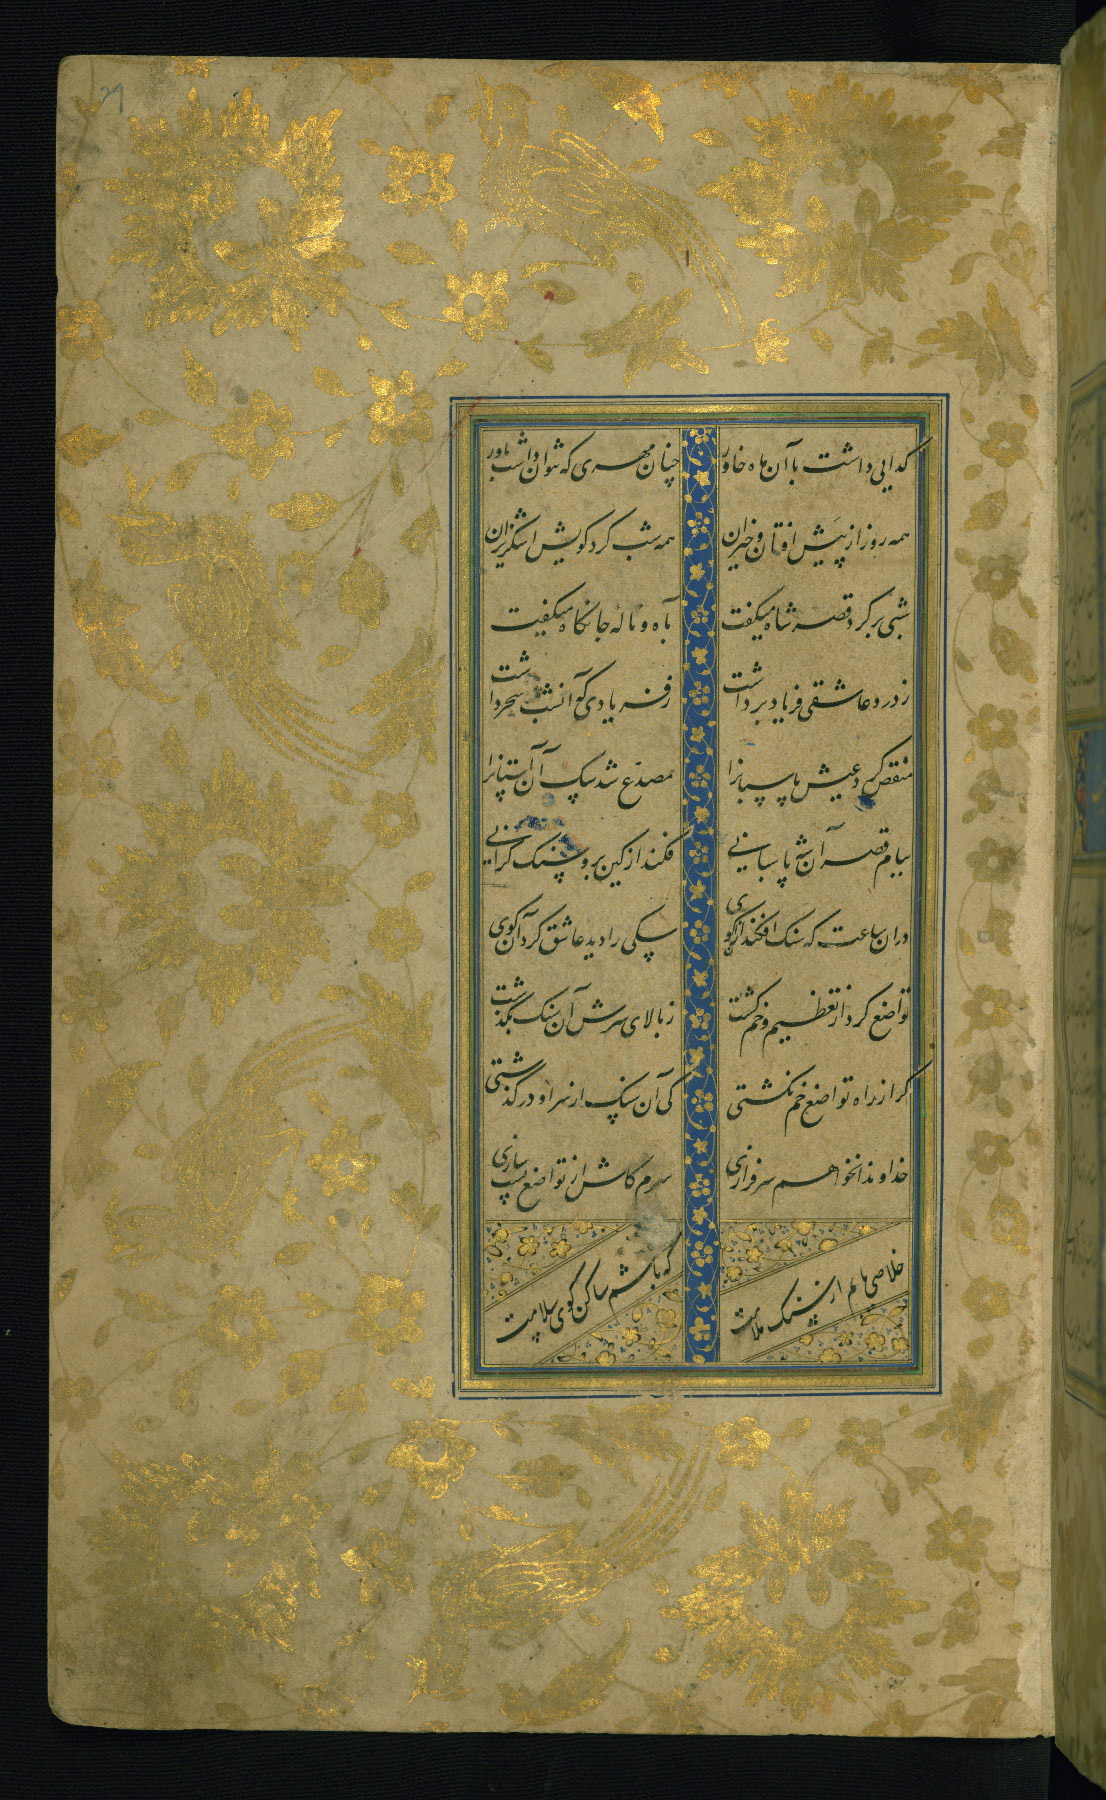 ۲۹
کدایی داشت با آن ماه خاور چنان مهری که نتوان داشت باور
همه روز از پیش افتان و خیزان همه شب کرد کویش اشکریزان
شبی بر کرد قصر شاه میکفت بآه و نالهٔ جانکاه میکفت
ز درد عاشقی فریاد برداشت ز فریادی کو آنشب سحر داشت
منقص کرد عیش پاسبانرا مصدع شد سک آن آستانرا
ببام قصر آن شه پاسبانی فکند از کین برو سنک کرانی
دران ساعت که سنک افکند سکی را دید عاشق کرد آن کوی
تواضع کرد از تعظیم و خم کشت ز بالای سرش آن سنک بکذشت
کر از راه تواضع خم نکشتی کی آن سنک از سر او درکذشتی
خداوندا نخواهم سرفرازی سرم کاش از تواضع پست سازی
خلاصی دهم از سنک ملامت که باشم ساکن کوی سلامت